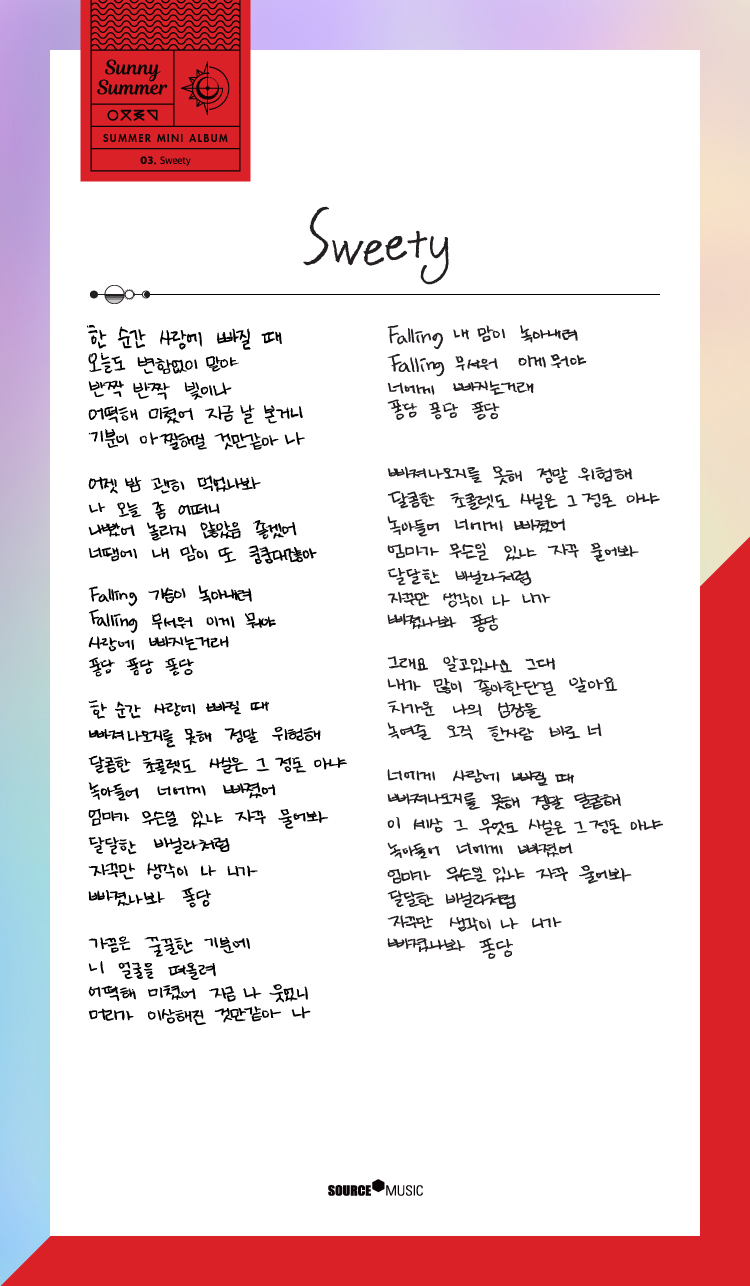 Sunny
Summer
SUMMER MINI ALBUM
03. Sweety
Sweety
한 순간 사랑에 빠질 때
오늘도 변함없이 말야
반짝 반짝 빛이나
어떡해 미쳤어 지금 날 본거니
기분이 아찔해질 것만같아 나
어젯 밤 괜히 먹었나봐
나 오늘 좀 어떠니
나빴어 놀라지 않았음 좋겠어
너땜에 내 맘이 또 쿵쿵대잖아
Falling 가슴이 녹아내려
Falling 무서워 이게 뭐야
사랑에 빠지는거래
퐁당 퐁당 퐁당
한 순간 사랑에 빠질 때
빠져나오지를 못해 정말 위험해
달콤한 초콜렛도 사실은 그 정돈 아냐
녹아들어 너에게 빠졌어
엄마가 무슨일 있냐 자꾸 물어봐
달달한 바닐라처럼
자꾸만 생각이 나 니가
빠졌나봐 퐁당
가끔은 꿀꿀한 기분에
니 얼굴을 떠올려
어떡해 미쳤어 지금 나 웃었니
머리가 이상해진 것만같아 나
Falling 내 맘이 녹아내려
Falling 무서워 이게 뭐야
너에게 빠지는거래
퐁당 퐁당 퐁당
빠져나오지를 못해 정말 위험해
달콤한 초콜렛도 사실은 그 정돈 아냐
녹아들어 너에게 빠졌어
엄마가 무슨일 있냐 자꾸 물어봐
달달한 바닐라처럼
자꾸만 생각이 나 니가
빠졌나봐 퐁당
그래요 알고있나요 그대
내가 많이 좋아한단걸 알아요
차가운 나의 심장을
녹여줄 오직 한사람 바로 너
너에게 사랑에 빠질 때
빠져나오지를 못해 정말 달콤해
이 세상 그 무엇도 사실은 그 정돈 아냐
녹아들어 너에게 빠졌어
엄마가 무슨일 있냐 자꾸 물어봐
달달한 바닐라처럼
자꾸만 생각이 나 니가
빠졌나봐 퐁당
SOURCE MUSIC